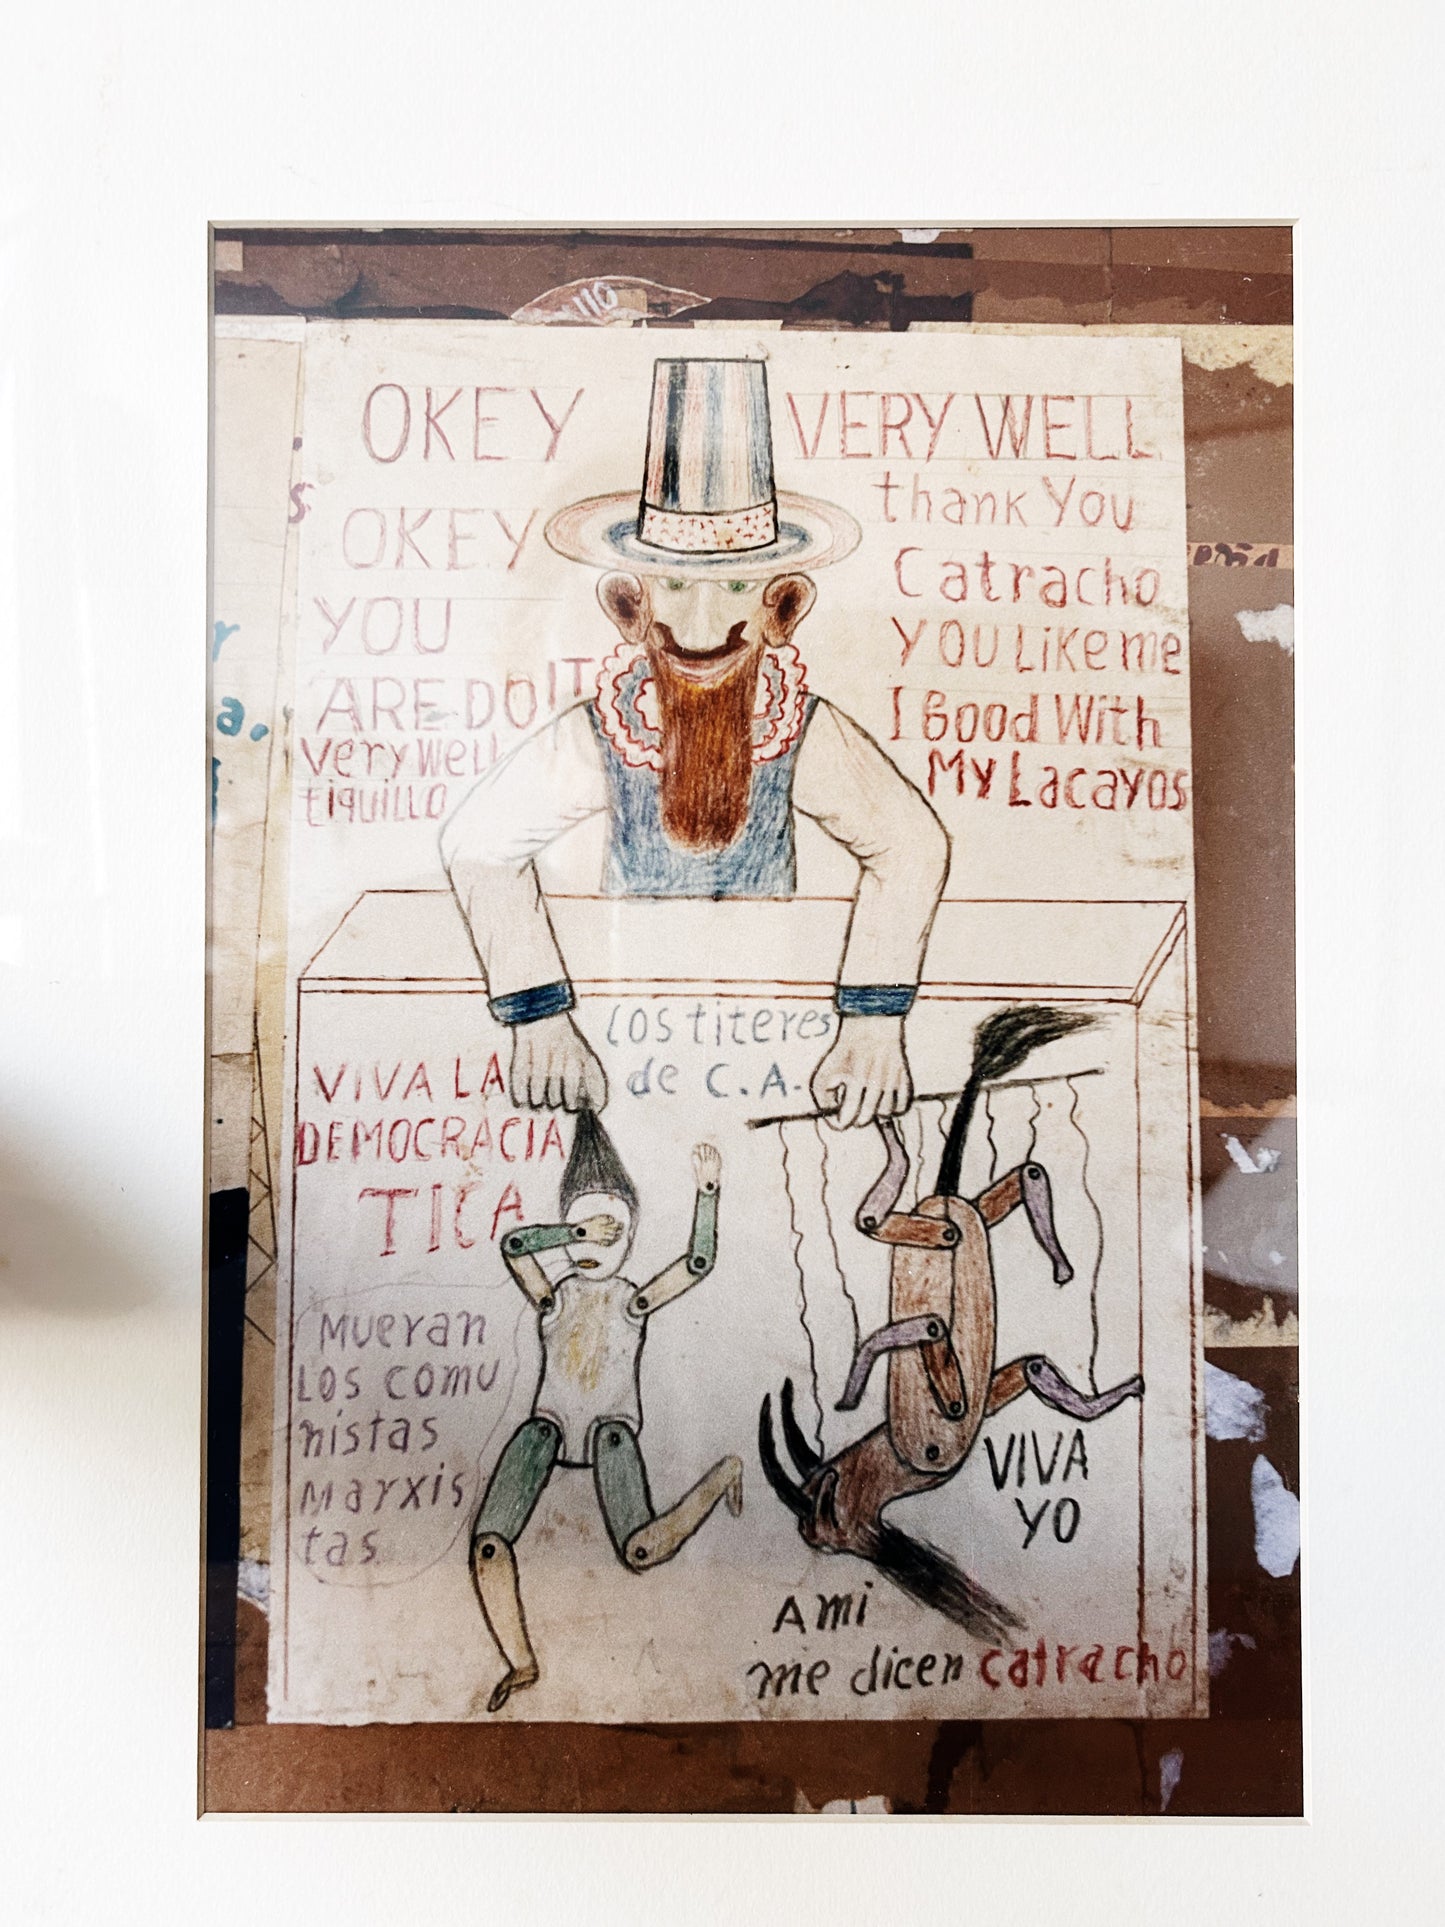 110
OKEY
OKEY
YOU
ARE DO IT
very well
tiquillo
VERY WELL
thank You
Catracho
YOU Like me
I Good With
My Lacayos
Los titeres
de C.A.
VIVA LA
DEMOCRACIA
TICA
Mueran
Los comu
nistas
Marxis
tas
VIVA
YO
A mi
me dicen catracho
s
r
a.